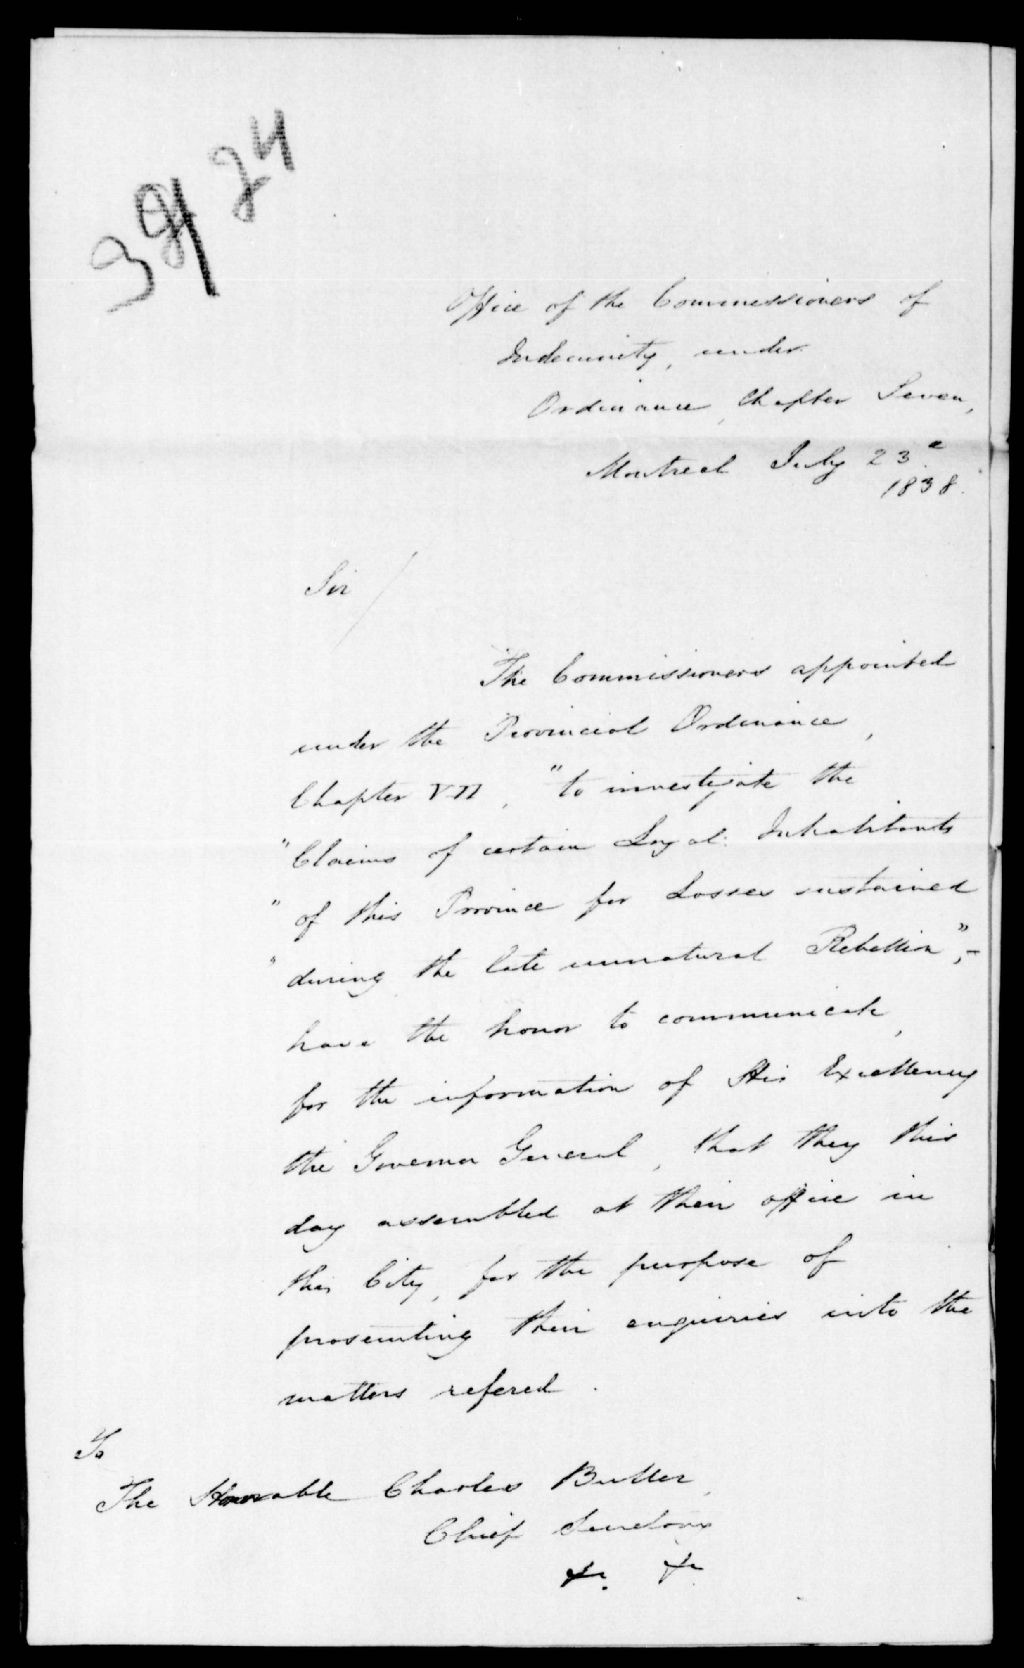 3924
Office of the Commissioners of
Indemnity, under
Ordinance, Chapter Seven,
Montreal July 23d
1838.
Sir /
The Commissioners appointed
under the Provincial Ordinance,
Chapter VII, "to investigate the
"Claims of certain Loyal Inhabitants
"of this Province for Losses sustained
"during the late unnatural Rebellion", -
have the honor to communicate,
for the information of His Excellency
the Governor General, that they this
day assembled at their office in
this City, for the purpose of
prosecuting their enquiries into the
matters refered.
To
The Honorable Charles Buller,
Chief Secretary
&c. &c.